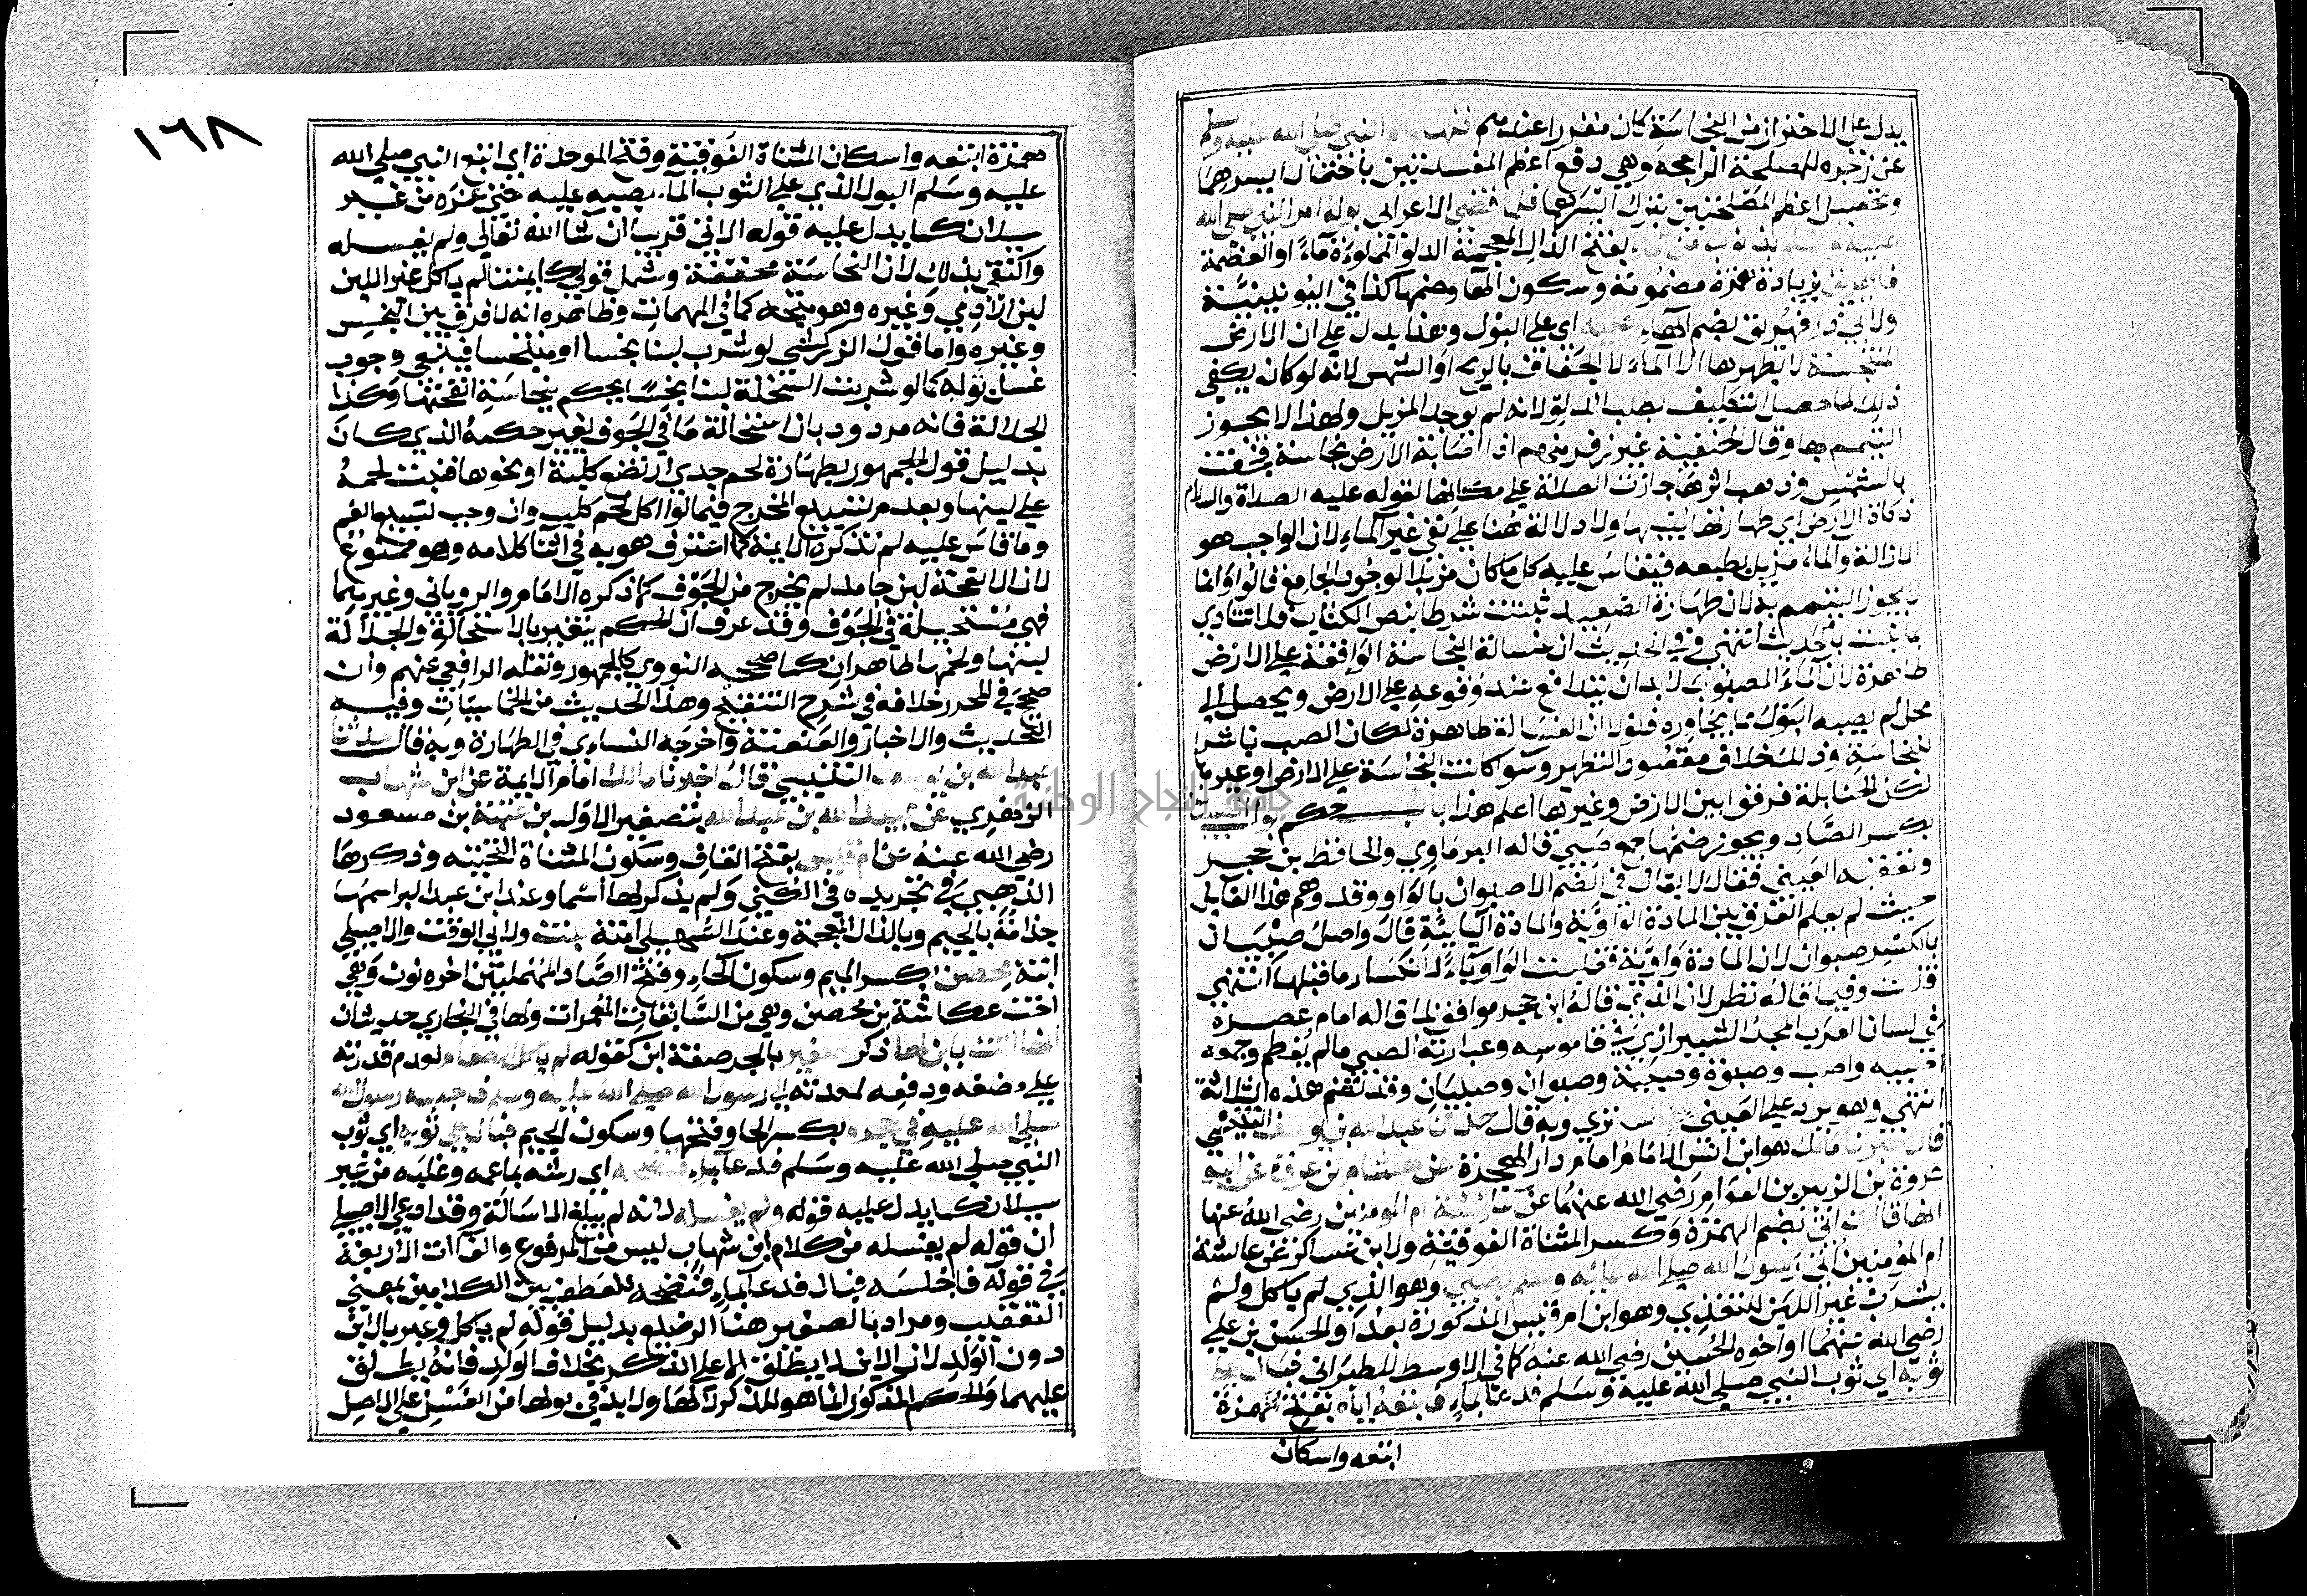 يدل على ان الاحتراز من النجاسة كان مقررا عندهم النبي صلى الله عليه وسلم
عن زجره للمصلحة الراجحة وهي دفع اعظم المفسدتين باحتمال ايسرهما
وتحصيل اعظم المصلحتين بترك ايسرهما فلما قضى الاعرابي بوله امر النبي صلى الله
عليه وسلم بذنوب من ماء بفتح الذال المعجمة الدلو المملوءة ماء او العظيمة
فاهريق بزيادة همزة مضمومة وسكون الهاء وضمها كذا في اليونينية
ولابي ذر فهريق بضم الهاء عليه اي على البول وهذا يدل على ان الارض
المتنجسة لا يطهرها الا الماء لا الجفاف بالريح او الشمس لانه لو كان يكفي
ذلك لما حصل التكليف بطلب الدلو لانه لم يوجد المزيل ولهذا لا يجوز
التيمم بها وقال الحنفية غير زفر منهم اذا اصابة الارض نجاسة فجفت
بالشمس وذهب اثرها جازت الصلاة على مكانها لقوله عليه الصلاة والسلام
ذكاة الارض اي طهارتها يبسها ولا دلالة هنا على نفي غير الماء لان الواجب هو
الازالة والماء مزيل بطبعه فيقاس عليه كل ما كان مزيلا لوجود الجامع قالوا وانما
لا يجوز التيمم به لان طهارة الصعيد ثبتت شرطا بنص الكتاب فلا تتادي
بما ثبت بالحديث انتهى وفي الحديث ان غسالة النجاسة الواقعة على الارض
طاهرة لان الماء المصبوب لا بد ان يتدافع عند وقوعه على الارض ويحصل الى
محل لم يصبه البول مما يجاوره فلولا ان الغسالة طاهرة لكان الصب ناشرا
للنجاسة وذلك خلاف مقصود التطهير وسوا كانت النجاسة على الارض او غيرها
لكن الحنابلة فرقوا بين الارض وغيرها اعلم هذا باب حكم بول الصبيان
بكسر الصاد ويجوز ضمها جمع صبي قاله البرماوي والحافظ بن حجر
وتعقبه العيني فقال لا يقال في الضم الا صبوان بالواو وقد وهم هذا القايل
حيث لم يعلم الفرق بين المادة الواوية والمادة اليايية قال واصل صبيان
بالكسر صبوان لان المادة واوية فقلبت الواو ياء لانكسار ما قبلها انتهى
قلت وفيما قاله نظر لان الذي قاله ابن حجر موافق لما قاله امام عصره
في لسان العرب المجد الشيرازي في قاموسه وعبارته الصبي ما لم يفطم وجمعه
اصبيه واصب وصبوة وصبية وصبوان وصبيان وقد تضم هذه الثلاثة
انتهى وهو يرد على العيني كما ترى وبه قال حدثنا عبد الله بن يوسف التنيسي
قال اخبرنا مالك هو ابن انس الامام امام دار الهجرة عن هشام بن عروة عن ابيه
عروة بن الزبير بن العوام رضي الله عنهما عن عائشة ام المومنين رضي الله عنها
انها قالت اتي بضم الهمزة وكسر المثناة الفوقية ولابن عساكر عن عائشة
ام المؤمنين اتي رسول الله صلى الله عليه وسلم بصبي وهو الذي لم ياكل ولم
يشرب غير اللبن للتغذي وهو ابن ام قيس المذكورة بعد او الحسن بن علي
رضي الله عنهما او اخوه الحسين رضي الله عنه كما في الاوسط للطبراني فبال على
ثوبه اي ثوب النبي صلى الله عليه وسلم فدعا بماء فاتبعه اياه بفتح الهمزة
اتبعه واسكان
١٦٨
همزة اتبعه واسكان المثناة الفوقية وفتح الموحدة اي اتبع النبي صلى الله
عليه وسلم البول الذي على الثوب الماء بصبه عليه حتى غمره من غير
سيلان كما يدل عليه قوله الاتي قريبا ان شا الله تعالى ولم يغسله
واكتفى بذلك لان النجاسة مخففة وشمل قولهم لم ياكل غير اللبن
لبن الآدمي وغيره وهو متجه كما في المهمات وظاهره انه لا فرق بين النجس
وغيره واما قول الزركشي لو شرب لبنا نجسا او متنجسا فينبغي وجوب
غسل بوله كما لو شربت السخلة لبنا نجسا يحكم بنجاسة انفحتها وكذا
الجلالة فانه مردود بان استحالة ما في الجوف تغير حكمه الذي كان
بدليل قول الجمهور بطهارة لحم جدي ارتضع كلبة او نحوها فنبت لحمه
على لبنها وبعدم تسبيع المخرج فيما لو اكل لحم كلب وان وجب تسبيع الفم
وما قاس عليه لم تذكره الايمة كما اعترف هو به في اثنا كلامه وهو ممنوع
لان الانفحة لبن جامد لم يخرج من الجوف كما ذكره الامام والروياني وغيرهما
فهي مستحيلة في الجوف وقد عرف ان الحكم يتغير بالاستحالة والجلالة
لبنها ولحمها طاهران كما صححه النووي كالجمهور ونقله الرافعي عنهم وان
صحح في المحرر خلافه في شرح التنقيح وهذا الحديث من الخماسيات وفيه
التحديث والاخبار والعنعنة واخرجه النساءي في الطهارة وبه قال حدثنا
عبد الله بن يوسف التنيسي قال اخبرنا مالك امام الايمة عن ابن شهاب
الزهري عن عبيد الله بن عبد الله بتصغير الاول بن عتبة بن مسعود
رضي الله عنه عن ام قيس بفتح القاف وسكون المثناة التحتيه وذكرها
الذهبي في تجريده في الكنى ولم يذكر لها اسما وعند ابن عبد البر اسمها
جذامة بالجيم وبالذال المعجمة وعند السهيلي امنة بنت ولابي الوقت والاصيلي
ابنة محصن بكسر الميم وسكون الحاء وفتح الصاد المهملتين اخره نون وهي
اخت عكاشة بن محصن وهي من السابقات المعمرات ولها في البخاري حديثان
انها اتت بابن لها ذكر صغير بالجر صفة ابن كقوله لم ياكل الطعام لعدم قدرته
على مضغه ودفعه لمعدته الى رسول الله صلى الله عليه وسلم فاجلسه رسول الله
صلى الله عليه في حجره بكسر الحا وفتحها وسكون الجيم فبال على ثوبه اي ثوب
النبي صلى الله عليه وسلم فدعا بماء فنضحه اي رشه بما عمه وغلبه من غير
سيلان كما يدل عليه قوله ولم يغسله لانه لم يبلغ الاسالة وقد ادعى الاصيلي
ان قوله لم يغسله من كلام ابن شهاب ليس من المرفوع والفاآت الاربعة
في قوله فاجلسه فبال فدعا بماء فنضحه للعطف بين الكلامين بمعنى
التعقيب ومراده بالصغير هنا الرضيع بدليل قوله لم ياكل وعبر بالابن
دون الولد لان الابن لا يطلق الا على الذكر بخلاف الولد فانه يطلق
عليهما والحكم المذكور انما هو للذكر لا لها ولا بد في بولها من الغسل على الاصل